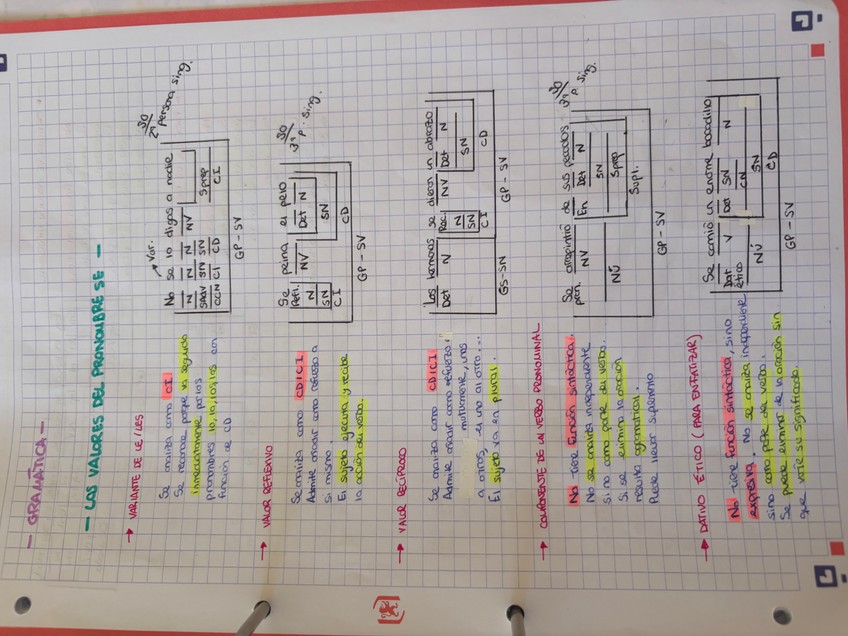 — GRAMÁTICA —
— LOS VALORES DEL PRONOMBRE SE —
→ VARIANTE DE LE/LES
Se analiza como CI
Se reconoce porque va seguido
inmediatamente por los
pronombres lo, la, los, las en
función de CD
Var.
No Se lo digas a nadie
N N N NV
SAdv SN SN Sprep
CCN CI CD CI
GP - SV
SO
2ª persona sing.
→ VALOR REFLEXIVO
Se analiza como CD/CI
Admite añadir como refuerzo a
sí mismo.
El sujeto ejecuta y recibe
la acción del verbo.
Se peina el pelo
Refl. NV Det N
N
SN SN
CI CD
GP - SV
SO
3ª p. sing.
→ VALOR RECÍPROCO
Se analiza como CD/CI
Admite añadir como refuerzo:
mutuamente, unos
a otros, el uno al otro...
El sujeto va en plural.
Los hermanos se dieron un abrazo
Det N Rec. NV Det N
N
SN SN
CI CD
GS-SN GP - SV
→ COMPONENTE DE UN VERBO PRONOMINAL
No tiene función sintáctica.
No se analiza independiente
si no como parte del verbo.
Si se elimina la oración
resulta agramatical.
Puede llevar suplemento
Se arrepintió de sus pecados
pron. NV En Det N
SN
NV Sprep
Supl.
GP - SV
SO
3ª p. sing.
→ DATIVO ÉTICO (PARA ENFATIZAR)
No tiene función sintáctica, sino
expresiva. No se analiza independiente
sino como parte del verbo.
Se puede eliminar de la oración sin
que varíe su significado.
Se comió un enorme bocadillo
Dat V Det SN N
ético CN
NV SN
CD
GP - SV